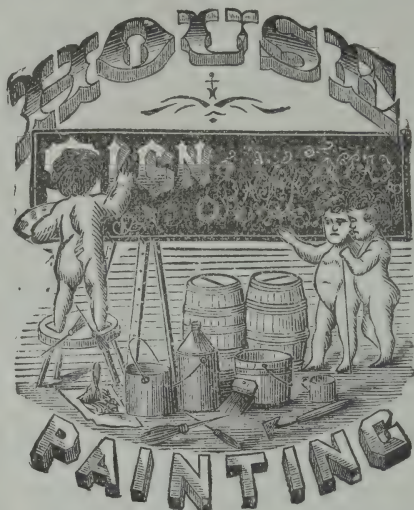 HOUSE
SIGN
PAINTING